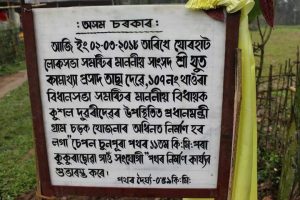 • অসম চৰকাৰ •
আজি ইং ০২-০৩-২০১৯ তাৰিখে যোৰহাট
লোকসভা সমষ্টিৰ মাননীয় সাংসদ শ্ৰী যুত
কামাখ্যা প্ৰসাদ তাছা দেৱে, ১০৭নং থাওৰা
বিধানসভা সমষ্টিৰ মাননীয় বিধায়ক
কুশল দুৱৰীদেৱৰ উপস্থিতিত প্ৰধানমন্ত্ৰী
গ্ৰাম্য চড়ক যোজনাৰ অধিনত নিৰ্মাণ হব
লগা চেপন চুনপুৰা পথৰ ১১তম কিঃ মিঃ পৰা
কুকুৰাচোৱা গাওঁ সংযোগী পথৰ নিৰ্মাণ কাৰ্য্যৰ
শুভাৰম্ভ কৰে।
পথৰ দৈৰ্ঘ্য- কিঃ মিঃ